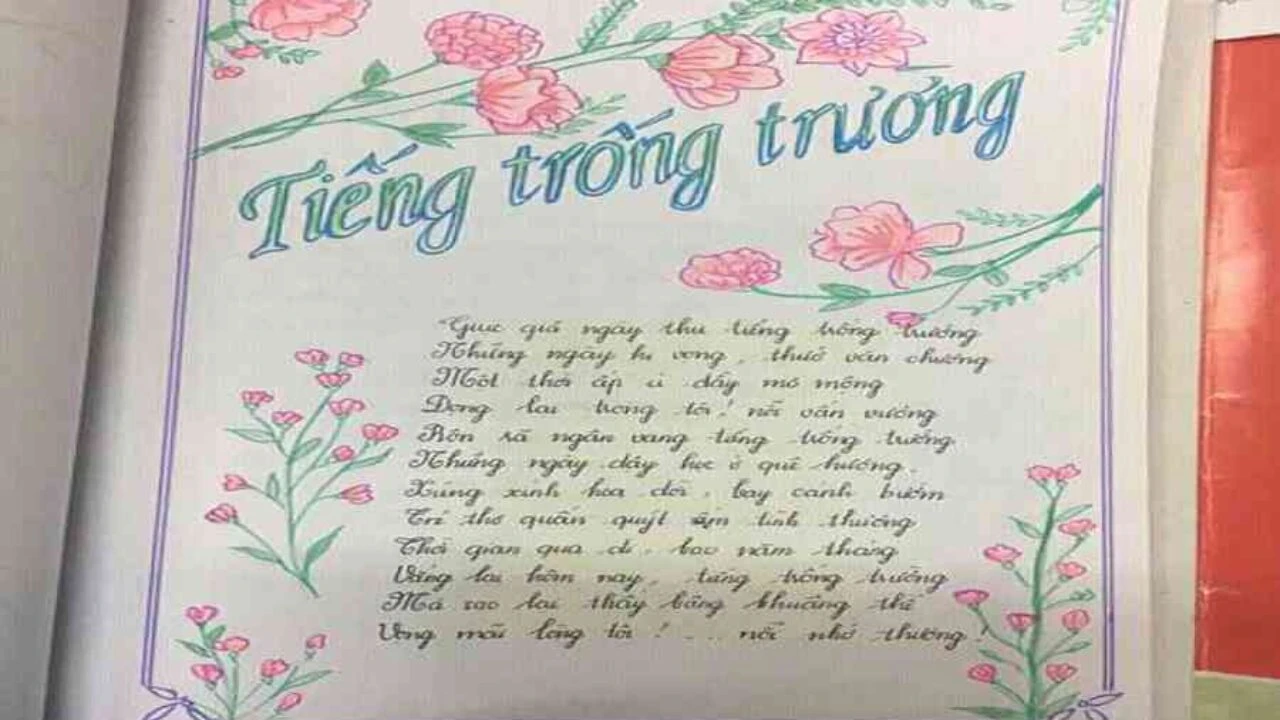 Tiếng trống trường
Giục giã ngày thu tiếng trống trường
Những ngày hi vọng, thuở văn chương
Một thời ấp ủ đầy mơ mộng
Đọng lại trong tôi! nỗi vấn vương
Rộn rã ngân vang tiếng trống trường
Những ngày dạy học ở quê hương.
Xúng xính hoa đời, bay cánh bướm
Trẻ thơ quấn quýt ấm tình thương
Thời gian qua đi, bao năm tháng
Vẳng lại hôm nay, tiếng trống trường
Mà sao lại thấy bâng khuâng thế
Vọng mãi lòng tôi!... nỗi nhớ thương!